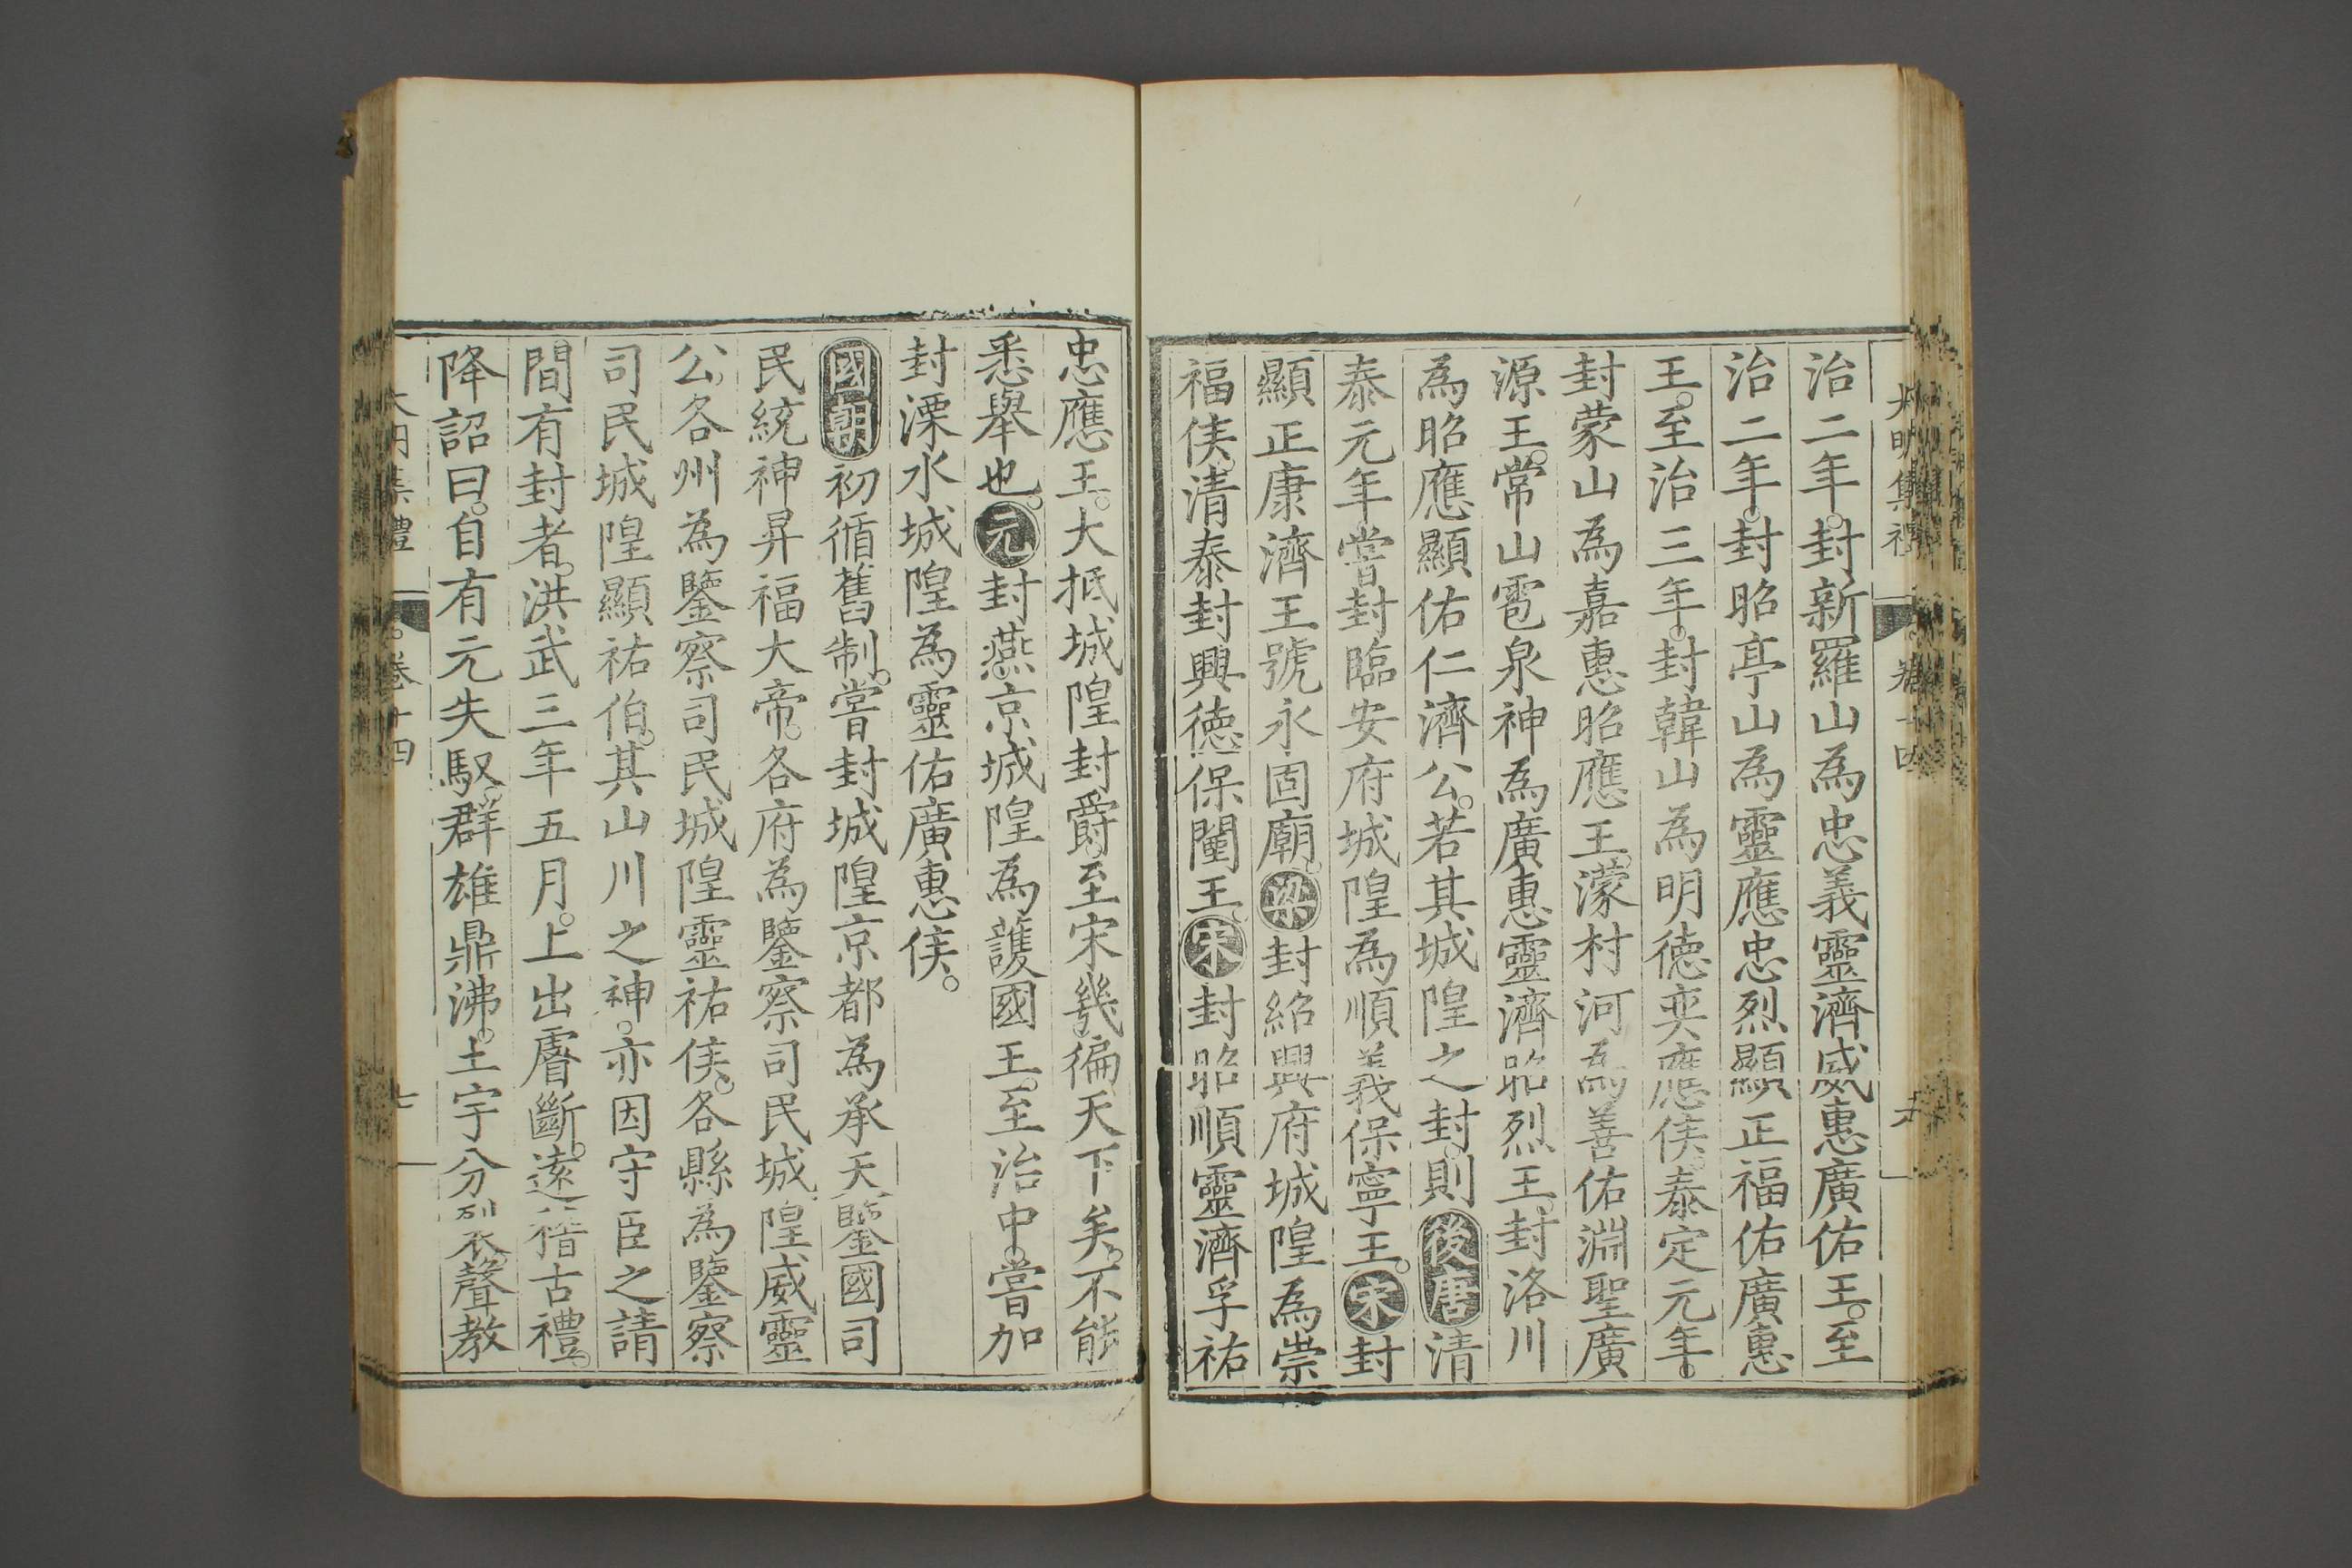 大明集禮 卷十四
治二年。封新羅山為忠義靈濟威惠廣佑王。至
治二年。封昭亭山為靈應忠烈顯正福佑廣惠
王。至治三年。封韓山為明德奕應侯。泰定元年。
封蒙山為嘉惠昭應王。濛村河為善佑淵聖廣
源王。常山雹泉神為廣惠靈濟昭烈王。封洛川
為昭應顯佑仁濟公。若其城隍之封。則後唐清
泰元年嘗封臨安府城隍為順義保寧王。宋封
顯正康濟王號永固廟。梁封紹興府城隍為崇
福侯。清泰封興德保闉王。宋封昭順靈濟孚祐
忠應王。大抵城隍封爵。至宋幾徧天下矣。不能
悉舉也。元封燕京城隍為護國王。至治中。嘗加
封溧水城隍為靈佑廣惠侯。
國朝初循舊制。嘗封城隍京都為承天鑒國司
民統神昇福大帝。各府為鑒察司民城隍威靈
公。各州為鑒察司民城隍靈祐侯。各縣為鑒察
司民城隍顯祐伯。其山川之神。亦因守臣之請
間有封者。洪武三年五月。上出睿斷。遠稽古禮。
降詔曰。自有元失馭。群雄鼎沸。土宇分裂。聲教
大明集禮 卷十四 七